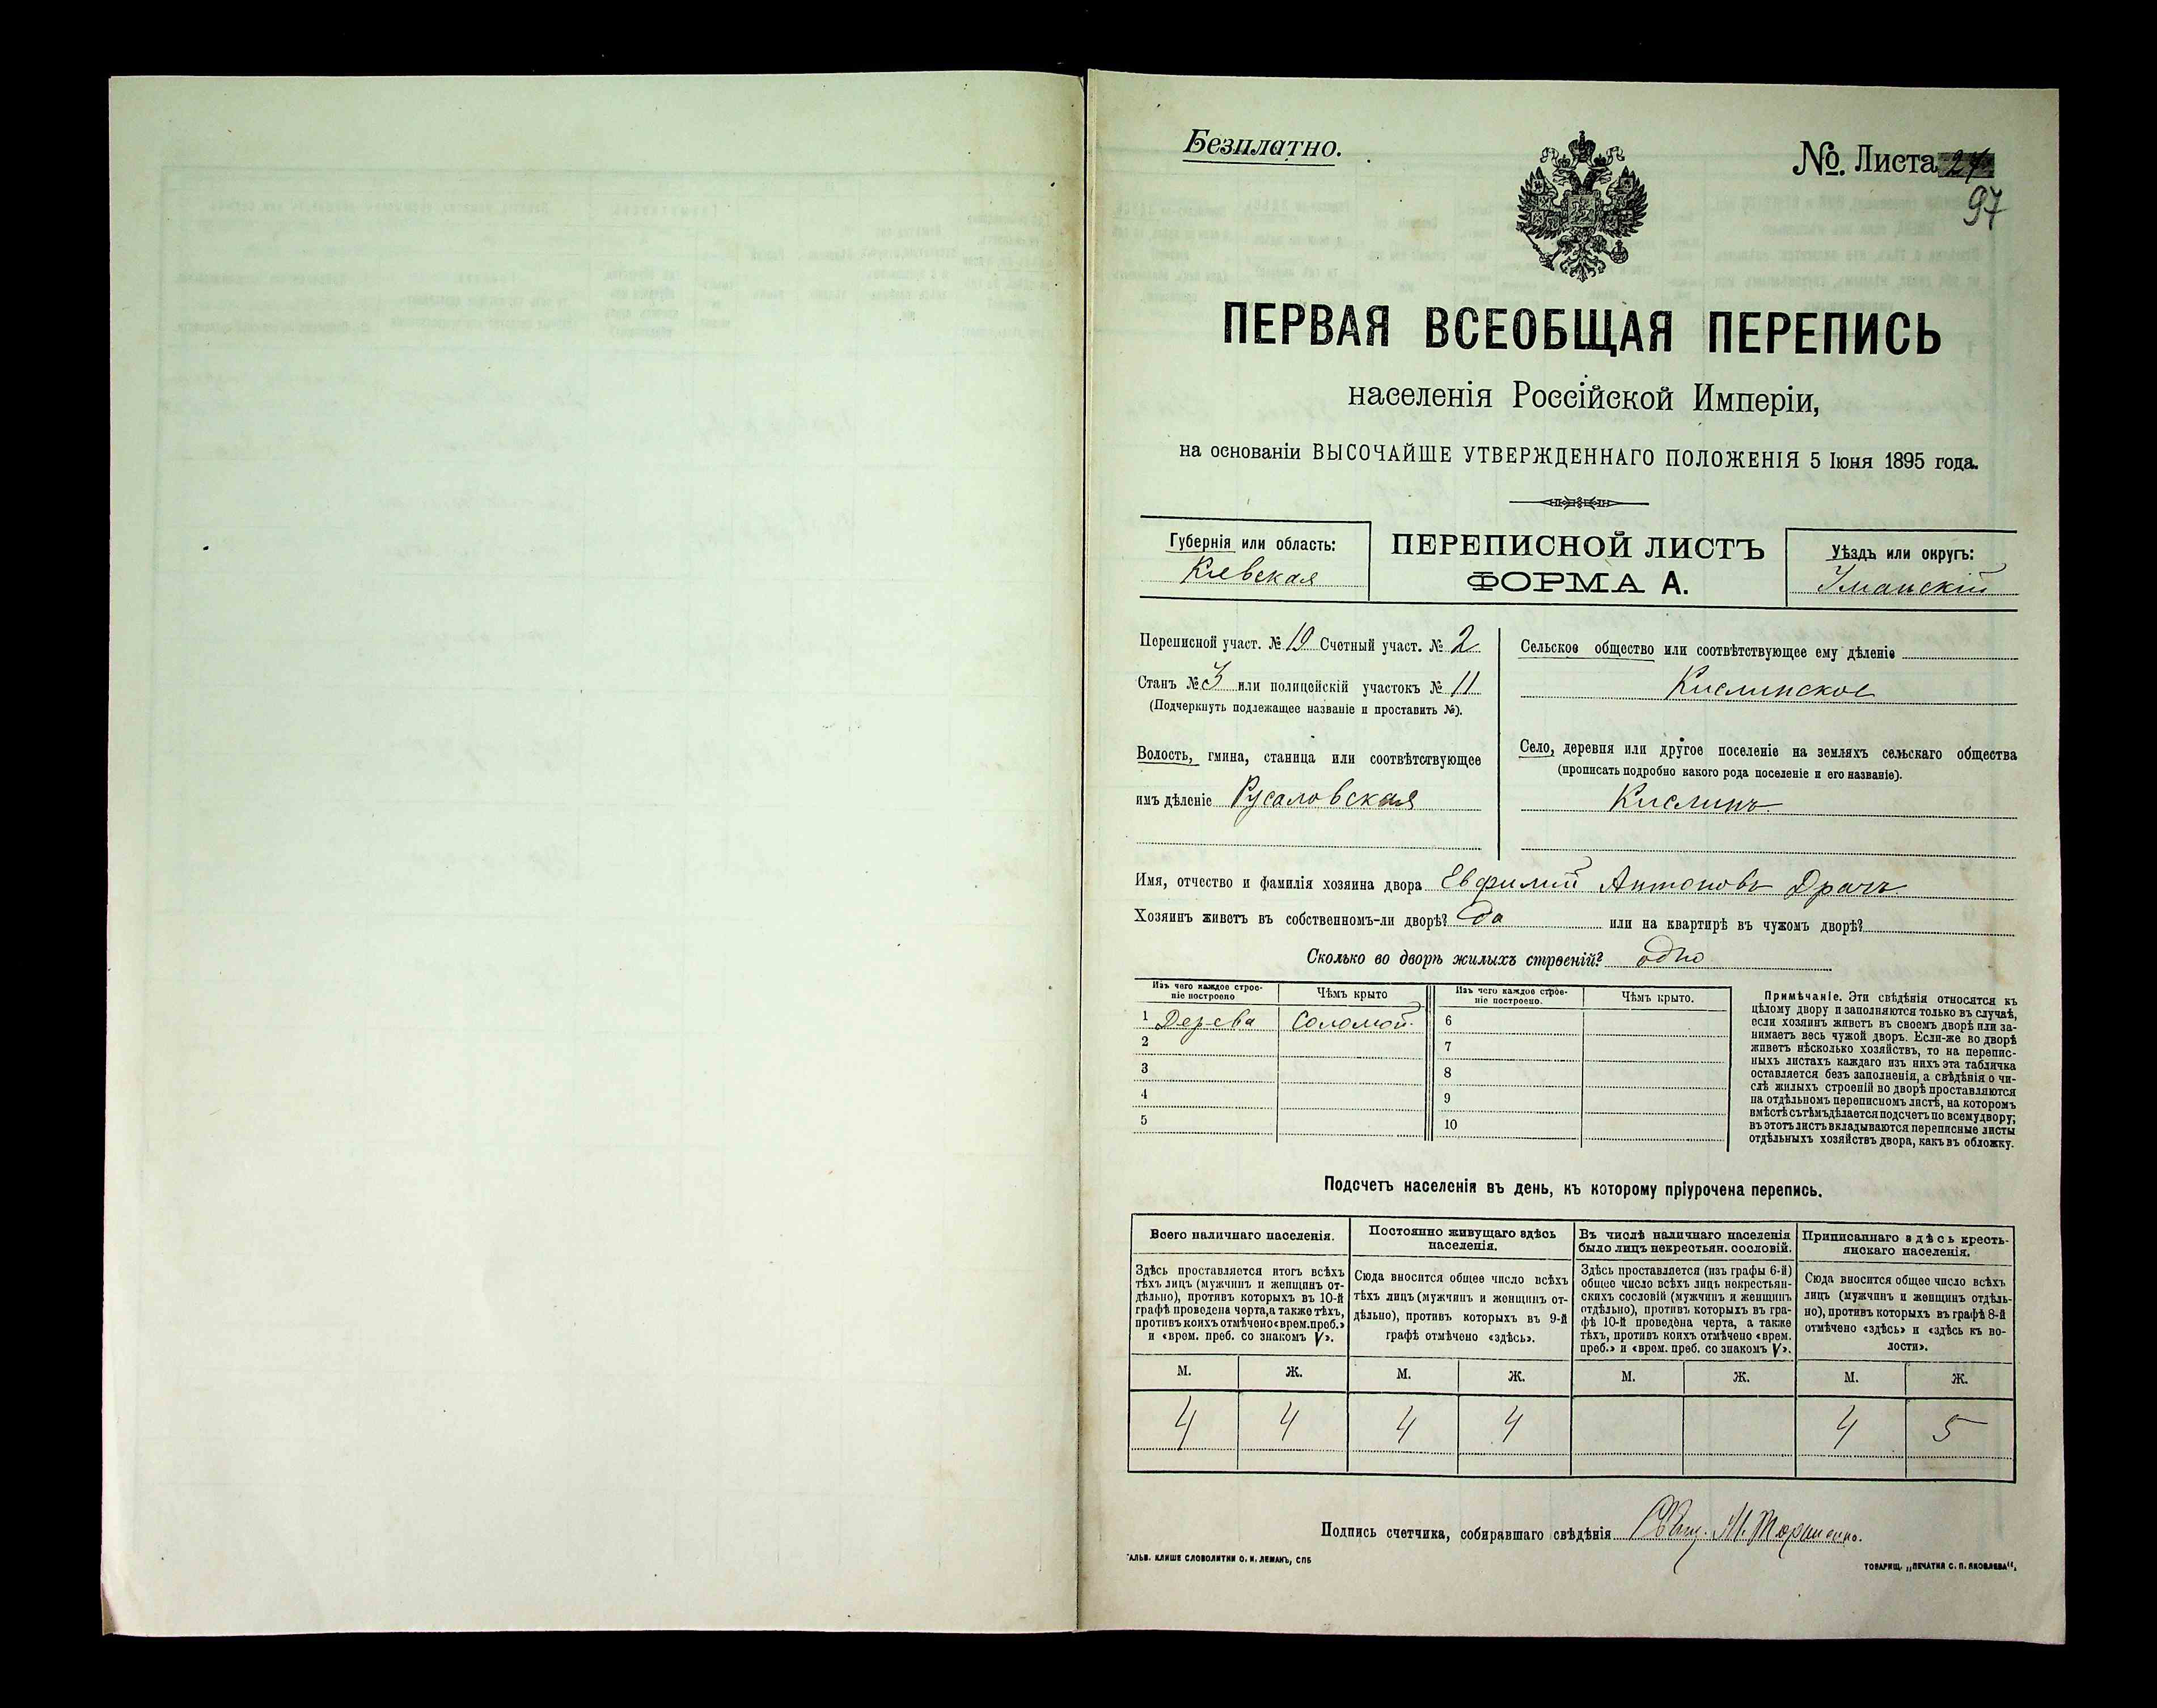 Безплатно.
№. Листа 24
97
ПЕРВАЯ ВСЕОБЩАЯ ПЕРЕПИСЬ
населенія Россійской Имперіи,
на основаніи ВЫСОЧАЙШЕ УТВЕРЖДЕННАГО ПОЛОЖЕНІЯ 5 Іюня 1895 года.
Губернія или область:
Кіевская
ПЕРЕПИСНОЙ ЛИСТЪ
ФОРМА А.
Уѣздъ или округъ:
Уманскій
Переписной участ. № 19 Счетный участ. № 2
Станъ № 3 или полицейскій участокъ № 11
(Подчеркнуть подлежащее названіе и проставить №).
Волость, гмина, станица или соотвѣтствующее
имъ дѣленіе Русаловская
Сельское общество или соотвѣтствующее ему дѣленіе
Кислинское
Село, деревня или другое поселеніе на земляхъ сельскаго общества
(прописать подробно какого рода поселеніе и его названіе).
Кислинъ
Имя, отчество и фамилія хозяина двора Евфимій Антоновъ Драчъ
Хозяинъ живетъ въ собственномъ-ли дворѣ? Да или на квартирѣ въ чужомъ дворѣ?
Сколько во дворѣ жилыхъ строеній? одно
Изъ чего каждое строе-
ніе построено
Чѣмъ крыто
Изъ чего каждое строе-
ніе построено.
Чѣмъ крыто.
1 Дерева Соломой 6
2 7
3 8
4 9
5 10
Примѣчаніе. Эти свѣдѣнія относятся къ
цѣлому двору и заполняются только въ случаѣ,
если хозяинъ живетъ въ своемъ дворѣ или за-
нимаетъ весь чужой дворъ. Если-же во дворѣ
живетъ нѣсколько хозяйствъ, то на перепис-
ныхъ листахъ каждаго изъ нихъ эта табличка
оставляется безъ заполненія, а свѣдѣнія о чи-
слѣ жилыхъ строеній во дворѣ проставляются
на отдѣльномъ переписномъ листѣ, на которомъ
вмѣстѣ съ тѣмъ дѣлается подсчетъ по всему двору;
въ этотъ листъ вкладываются переписные листы
отдѣльныхъ хозяйствъ двора, какъ въ обложку.
Подсчетъ населенія въ день, къ которому пріурочена перепись.
Всего наличнаго населенія.
Здѣсь проставляется итогъ всѣхъ
тѣхъ лицъ (мужчинъ и женщинъ от-
дѣльно), противъ которыхъ въ 10-й
графѣ проведена черта, а также тѣхъ,
противъ коихъ отмѣчено «врем. преб.»
и «врем. преб. со знакомъ V».
Постоянно живущаго здѣсь
населенія.
Сюда вносится общее число всѣхъ
тѣхъ лицъ (мужчинъ и женщинъ от-
дѣльно), противъ которыхъ въ 9-й
графѣ отмѣчено «здѣсь».
Въ числѣ наличнаго населенія
было лицъ некрестьян. сословій.
Здѣсь проставляется (изъ графы 6-й)
общее число всѣхъ лицъ некрестьян-
скихъ сословій (мужчинъ и женщинъ
отдѣльно), противъ которыхъ въ гра-
фѣ 10-й проведена черта, а также
тѣхъ, противъ коихъ отмѣчено «врем.
преб.» и «врем. преб. со знакомъ V».
Приписаннаго здѣсь кресть-
янскаго населенія.
Сюда вносится общее число всѣхъ
лицъ (мужчинъ и женщинъ отдѣль-
но), противъ которыхъ въ графѣ 8-й
отмѣчено «здѣсь» и «здѣсь къ во-
лости».
М. Ж. М. Ж. М. Ж. М. Ж.
4 4 4 4 4 5
Подпись счетчика, собиравшаго свѣдѣнія
ГАЛЬВ. КЛИШЕ СЛОВОЛИТНИ О. И. ЛЕМАНЪ, СПБ
ТОВАРИЩ. „ПЕЧАТНЯ С. П. ЯКОВЛЕВА“.